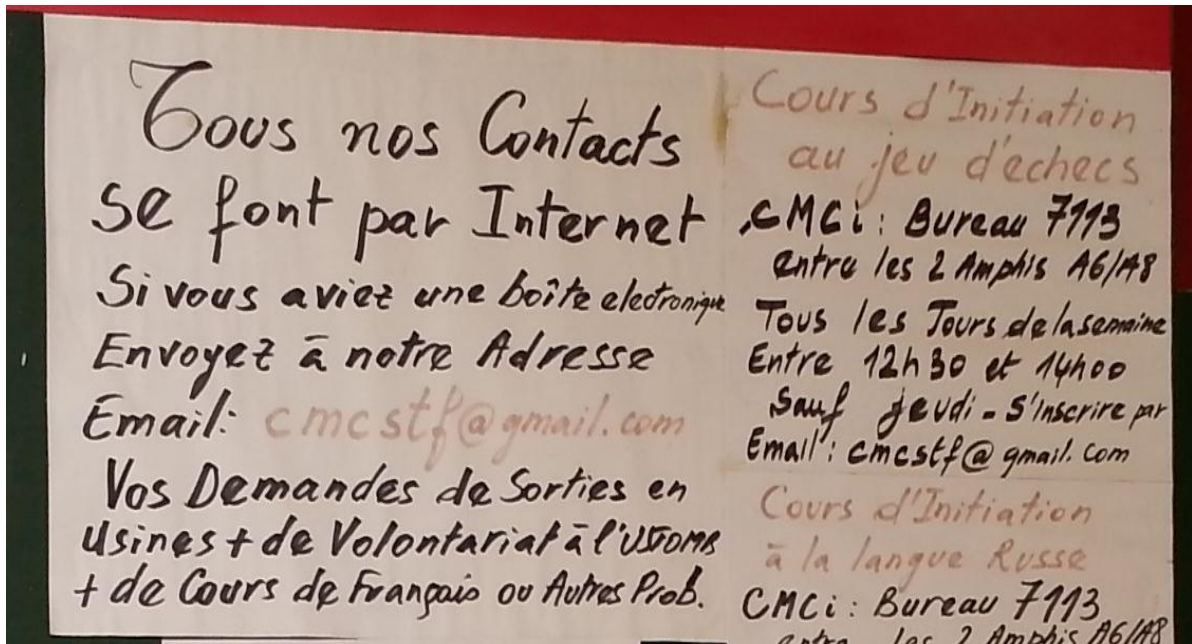 Tous nos Contacts
se font par Internet
Si vous aviez une boîte electronique
Envoyez à notre Adresse
Email: cmcstf@gmail.com
Vos Demandes de Sorties en
Usines + de Volontariat à l'USTOMB
+ de Cours de Français ou Autres Prob.
Cours d'Initiation
au jeu d'echecs
CMCi : Bureau 7113
entre les 2 Amphis A6/A8
Tous les Jours de la semaine
Entre 12h30 et 14h00
Sauf jeudi - S'inscrire par
Email : cmcstf@gmail.com
Cours d'Initiation
à la langue Russe
CMCi : Bureau 7113
entre les 2 Amphis A6/A8